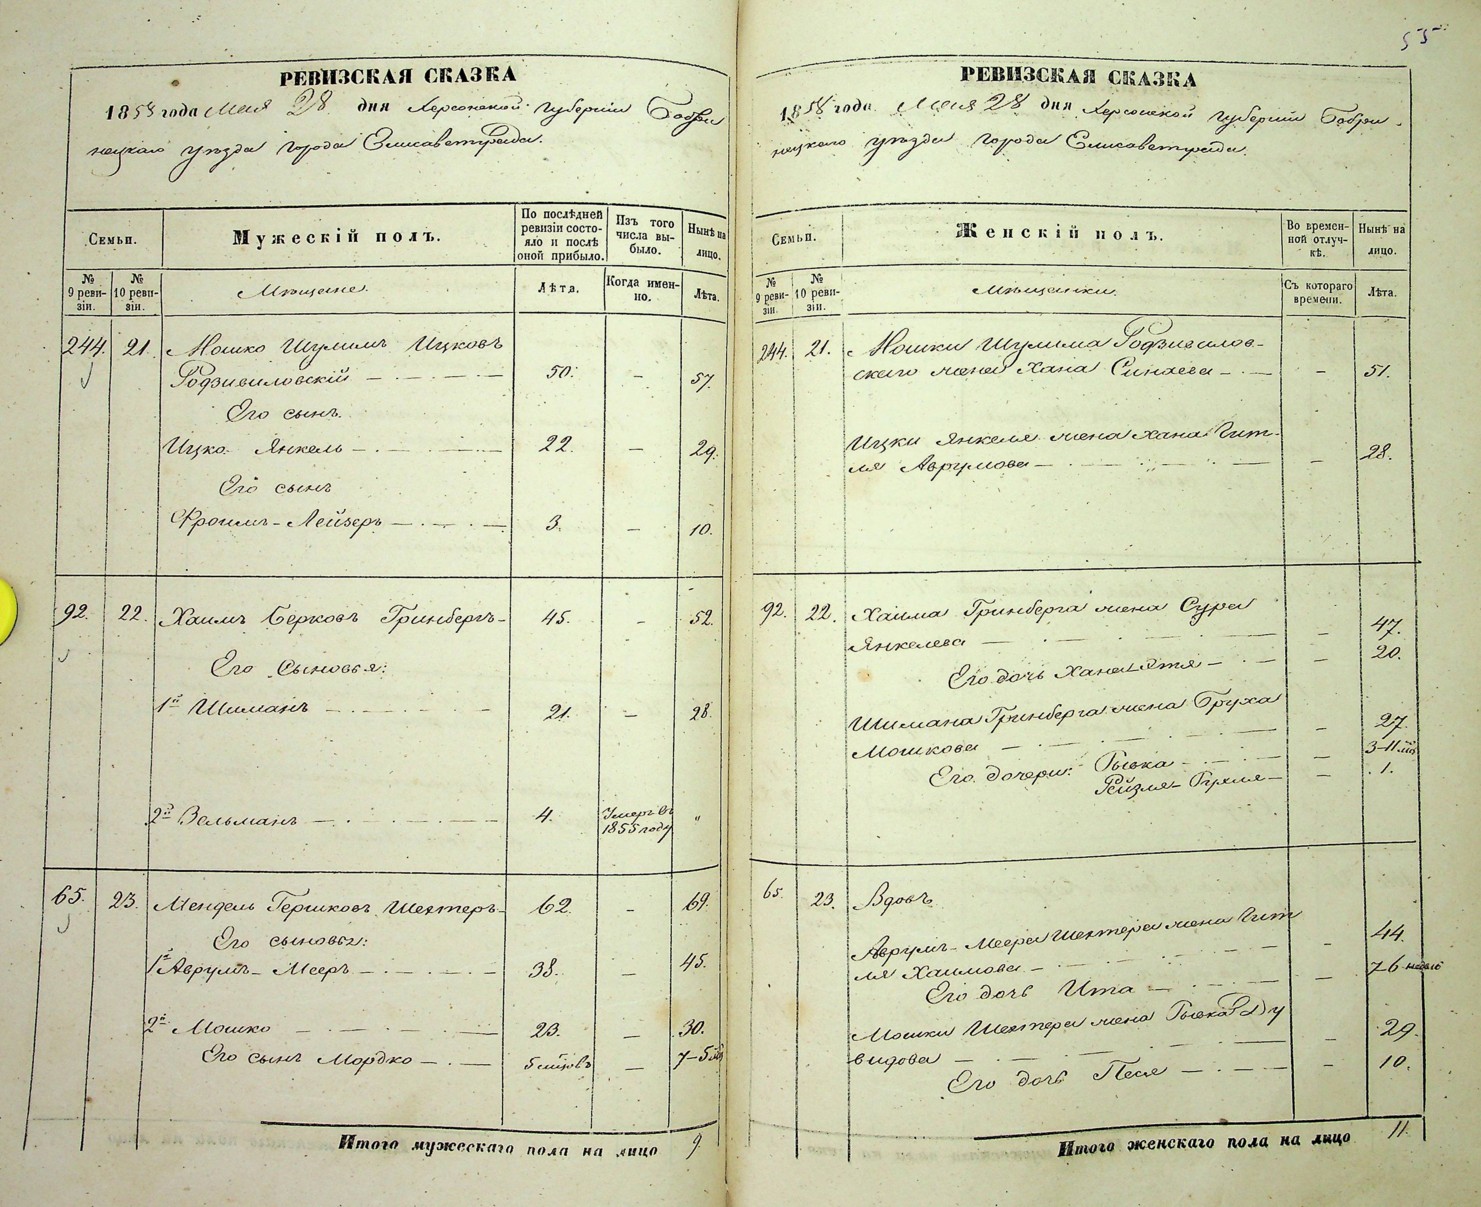 55
РЕВИЗСКАЯ СКАЗКА
1858 года Мая 28 дня Херсонской губернии Бобри
нецкаго уѣзда города Елисаветграда.
Семьи.
Мужескій полъ.
По послѣдней
ревизіи состо-
яло и послѣ
оной прибыло.
Изъ того
числа вы-
было.
Нынѣ на
лицо.
№
9 реви-
зіи.
№
10 реви-
зіи.
Мѣщане.
Лѣта.
Когда имен-
но.
Лѣта.
244. 21. Мошко Шулимъ Ицковъ
Родзивиловскій — 50. — 57.
Его сынъ.
Ицко Янкель — 22. — 29.
Его сынъ
Фроимъ-Лейзеръ — 3. — 10.
92. 22. Хаимъ Берковъ Гринбергъ — 45. — 52.
Его Сыновья:
1й Шиманъ — 21. — 28.
2й Зельманъ — 4. Умеръ въ
1855 году "
65. 23. Мендель Гершковъ Шехтеръ — 62. — 69.
Его сыновья:
1й Аврумъ-Мееръ — 38. — 45.
2й Мошко — 23. — 30.
Его сынъ Мордко — 5 мцовъ — 7-5 мц
Итого мужескаго пола на лицо 9
РЕВИЗСКАЯ СКАЗКА
1858 года Мая 28 дня Херсонской губернии Бобри-
нецкаго уѣзда города Елисаветграда.
Семьи.
Женскій полъ.
Во времен-
ной отлуч-
кѣ.
Нынѣ на
лицо.
№
9 реви-
зіи.
№
10 реви-
зіи.
Мѣщанки.
Съ котораго
времени.
Лѣта.
244. 21. Мошки Шулима Родзивилов-
скаго жена Хана Синаева — — 51.
Ицки Янкеля жена Хана Гит-
ля Аврумова — — 28.
92. 22. Хаима Гринберга жена Сура
Янкелева — — 47.
Его дочь Хана Этя — — 20.
Шимана Гринберга жена Бруха
Мошкова — — 27.
Его дочери: Рывка — — 3-11 мц
Рейзля-Рухля — — 1.
65 23. Вдовъ
Аврумъ-Меера Шехтера жена Гит
ля Хаимова — 44.
Его дочь Ита — — 7-6 недѣль
Мошки Шехтера жена Рывка Ду
видова — — 29.
Его дочь Песя — — 10.
Итого женскаго пола на лицо 11.